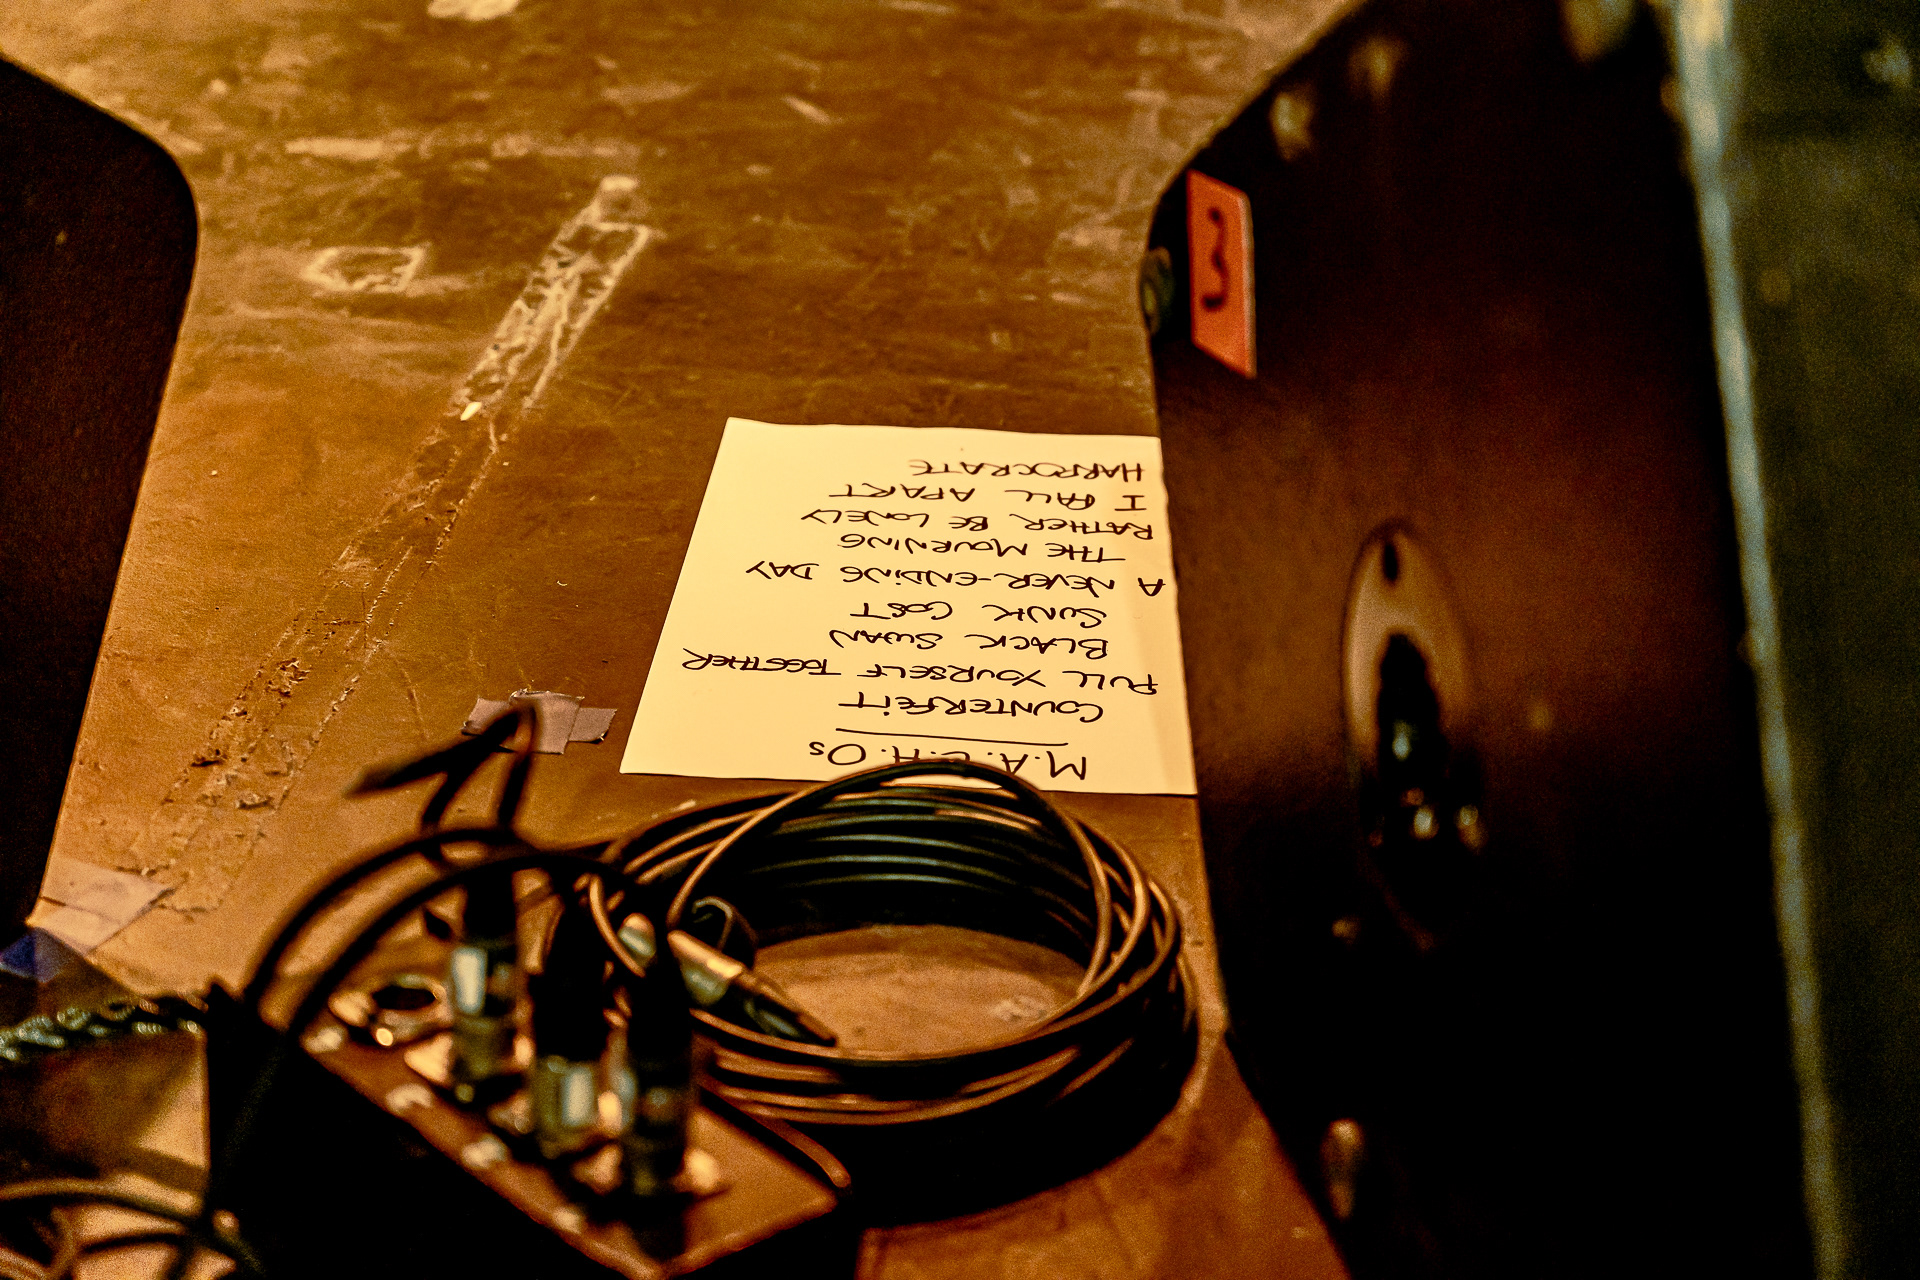 M.A.C.H.Os
COUNTERFEiT
PULL YOURSELF TOGETHER
BLACK SWAN
SUNK COST
A NEVER-ENDiNG DAY
THE MOURNING
RATHER BE LONELY
I FALL APART
HARPOCRATE
3